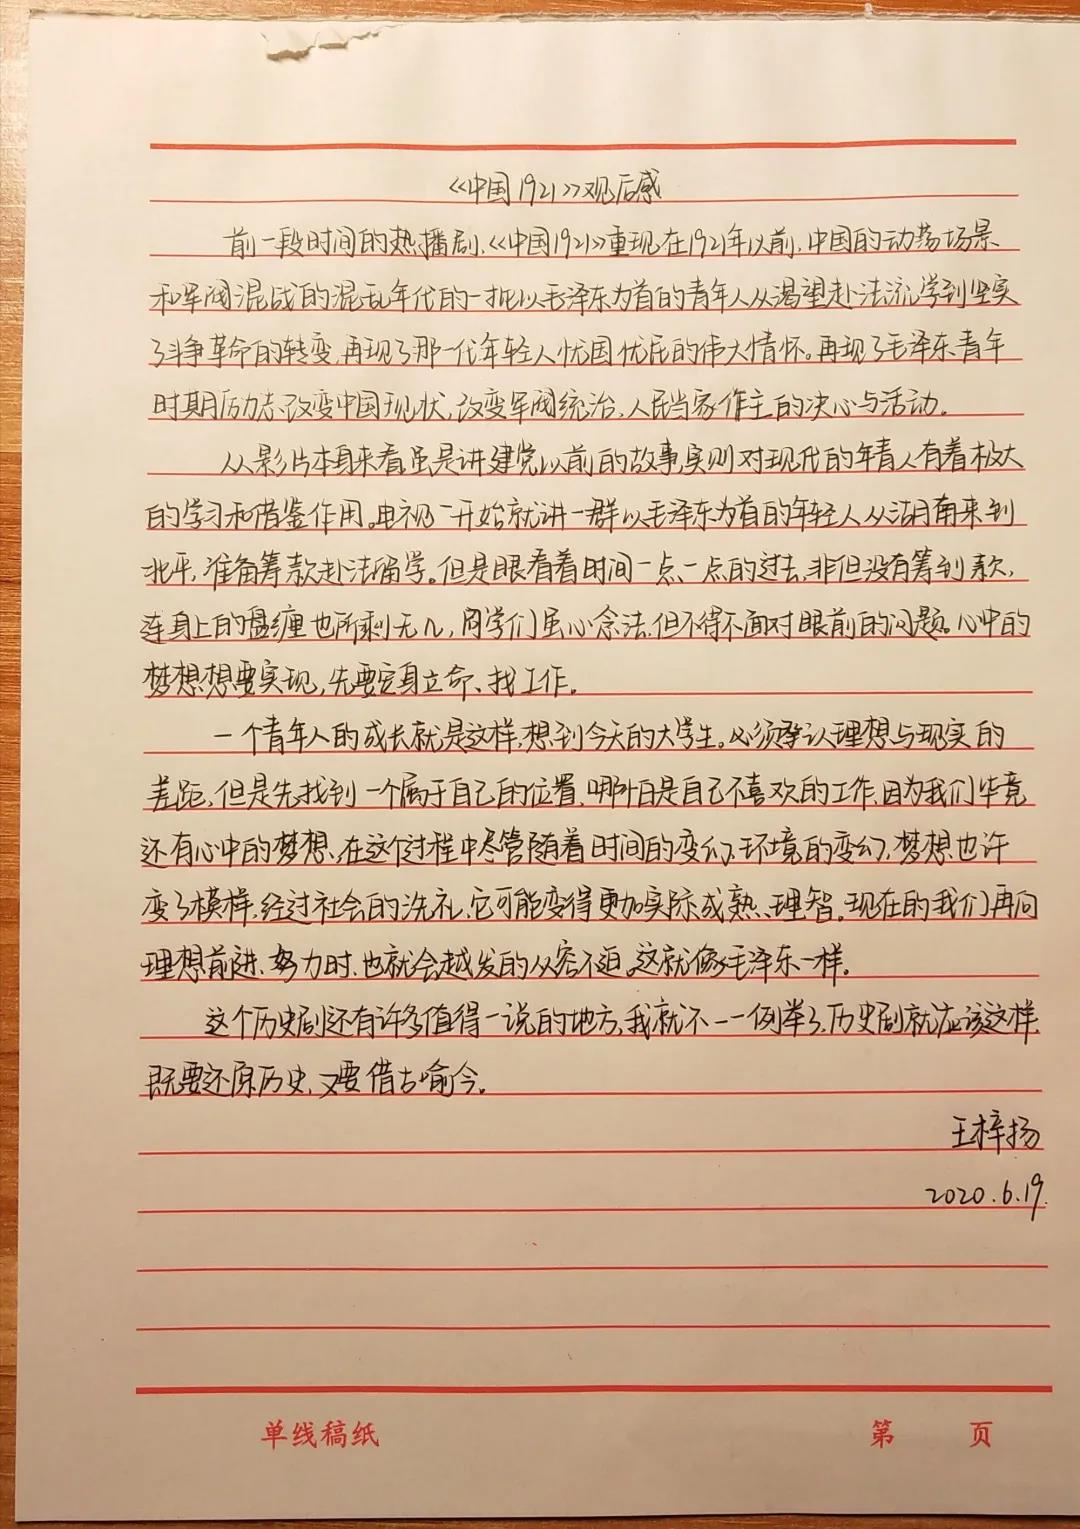 《中国1921》观后感
前一段时间的热播剧,《中国1921》重现在1921年以前,中国的动荡场景
和军阀混战的混乱年代的一批以毛泽东为首的青年人从渴望赴法流学到坚实
了斗争革命的转变,再现了那一代年轻人忧国忧民的伟大情怀。再现了毛泽东青年
时期励志改变中国现状,改变军阀统治,人民当家作主的决心与活动。
从影片本身来看虽是讲建党以前的故事,实则对现代的年青人有着极大
的学习和借鉴作用。电视一开始就讲一群以毛泽东为首的年轻人从湖南来到
北平,准备筹款赴法留学。但是眼看着时间一点一点的过去,非但没有筹到款,
连身上的盘缠也所剩无几,同学们虽心念法,但不得不面对眼前的问题。心中的
梦想想要实现,先要安身立命、找工作。
一个青年人的成长就是这样,想到今天的大学生。必须承认理想与现实的
差距,但是先找到一个属于自己的位置,哪怕是自己不喜欢的工作,因为我们毕竟
还有心中的梦想,在这个过程中尽管随着时间的变幻,环境的变幻,梦想也许
变了模样,经过社会的洗礼,它可能变得更加实际、成熟、理智。现在的我们再向
理想前进、努力时,也就会越发的从容不迫。这就像毛泽东一样。
这个历史剧还有许多值得一说的地方,我就不一一例举了,历史剧就应该这样,
既要还原历史,又要借古喻今。
王梓扬
2020.6.19.
单线稿纸
第 页